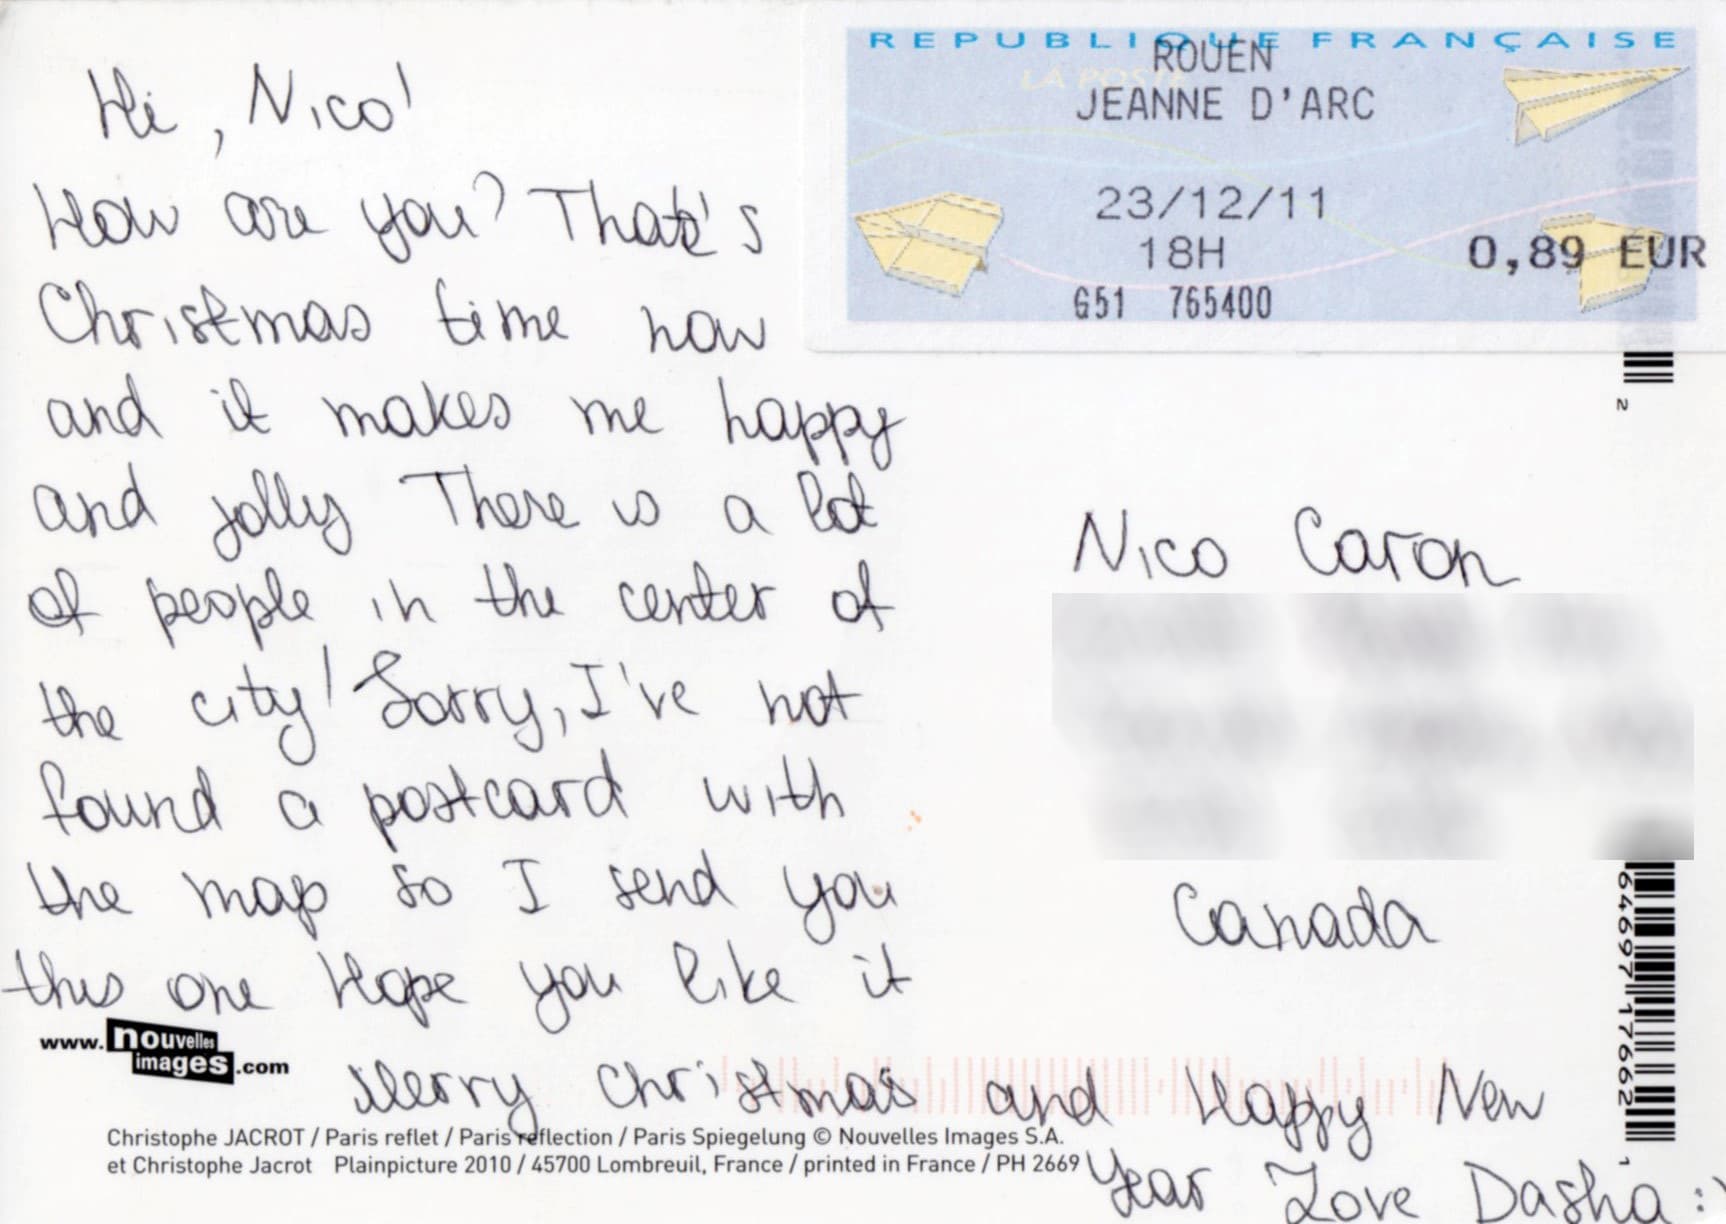 Hi, Nico!
How are you? That's
Christmas time now
and it makes me happy
and jolly There is a lot
of people in the center of
the city! Sorry, I've not
found a postcard with
the map so I send you
this one Hope you like it
Merry Christmas and Happy New
Year Love Dasha :)
REPUBLIQUE FRANÇAISE
LA POSTE
ROUEN
JEANNE D'ARC
23/12/11
18H
0,89 EUR
G51 765400
Nico Caron
Canada
www.nouvelles
images.com
Christophe JACROT / Paris reflet / Paris reflection / Paris Spiegelung © Nouvelles Images S.A.
et Christophe Jacrot Plainpicture 2010 / 45700 Lombreuil, France / printed in France / PH 2669
2
64697 17662 1